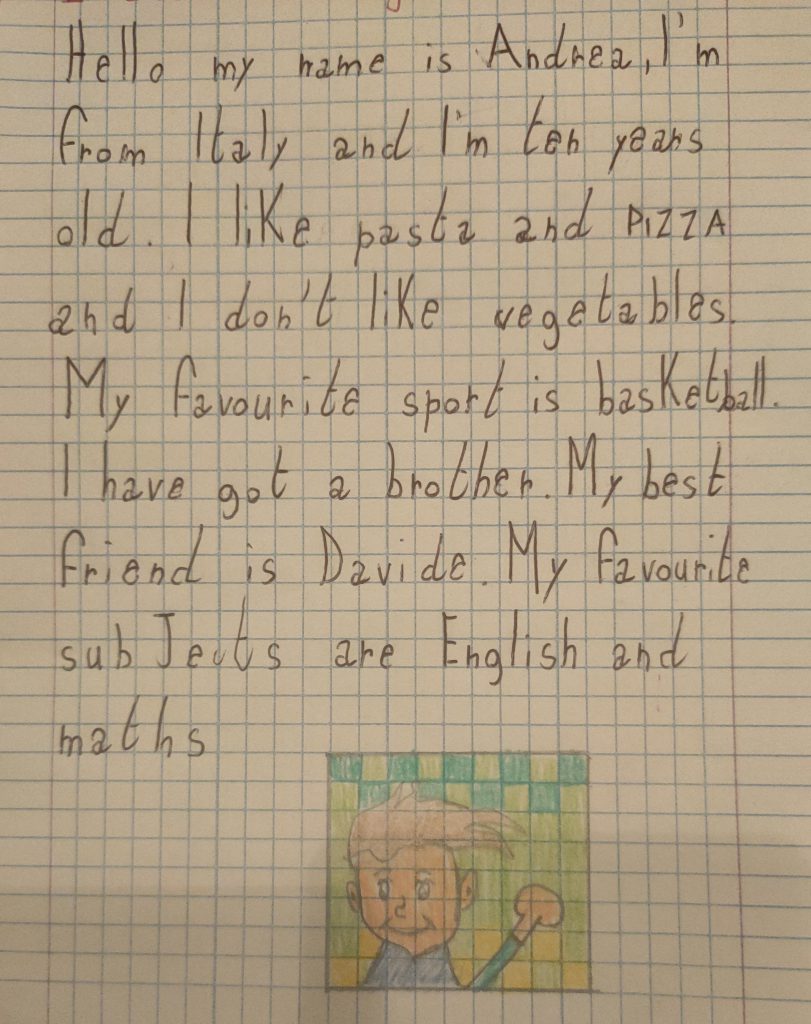 Hello my name is Andrea, I'm
from Italy and I'm ten years
old. I like pasta and PiZZA
and I don't like vegetables.
My favourite sport is basketball.
I have got a brother. My best
friend is Davide. My favourite
subJects are English and
maths